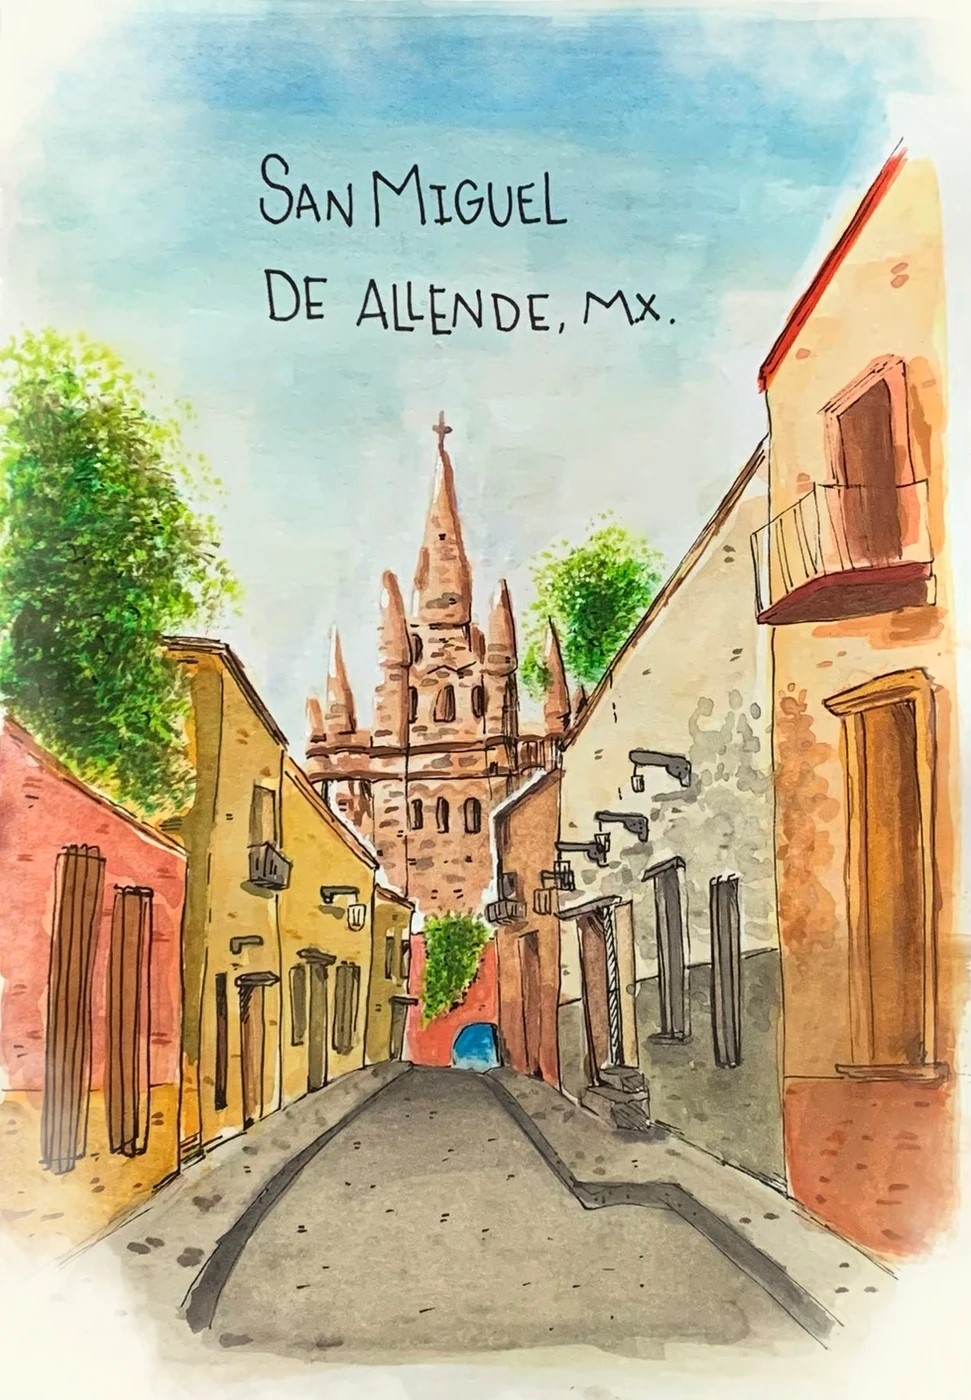 San Miguel
de Allende, Mx.